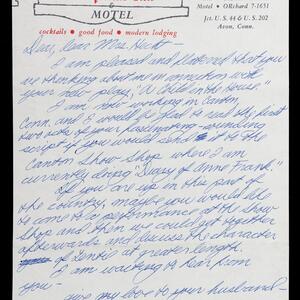 MOTEL
cocktails • good food • modern lodging
Motel • ORchard 7-1651
Jct. U.S. 44 & U.S. 202
Avon, Conn.
Dear, dear Mrs. Hecht —
I am pleased and flattered that you
are thinking about me in connection with
your new play, "A Child in the House."
I am now working in Canton,
Conn. and I would be glad to read the first
two acts of your fascinating-sounding
script if you would send it to the
Canton Show Shop where I am
currently doing "Diary of Anne Frank."
If you are up in this part of
the country, maybe you would like
to come to a performance at the Show
Shop and then we could get together
afterwards and discuss the character
of at greater length.
I am waiting to hear from
you —
Give my love to your husband —